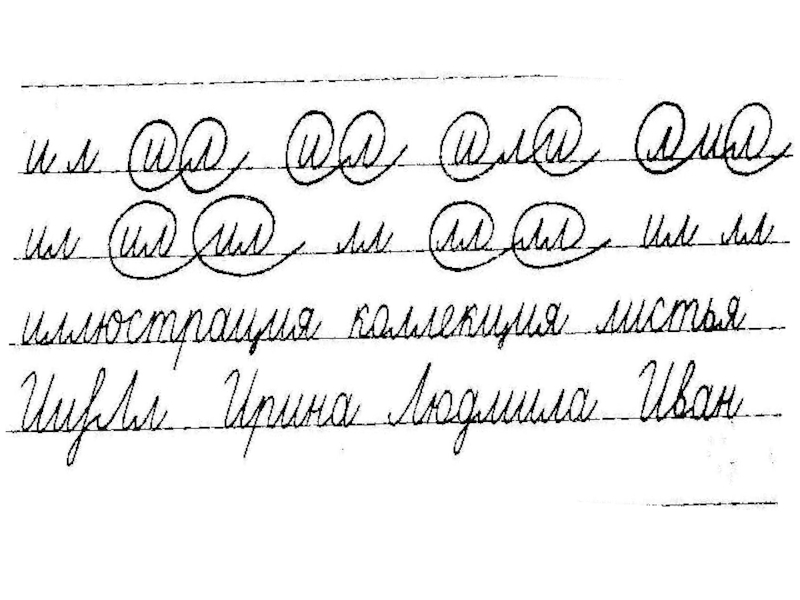 и л и л и л и л и л и л
ил ил ил лл лл лл ил лл
иллюстрация коллекция листья
Ии Лл Ирина Людмила Иван